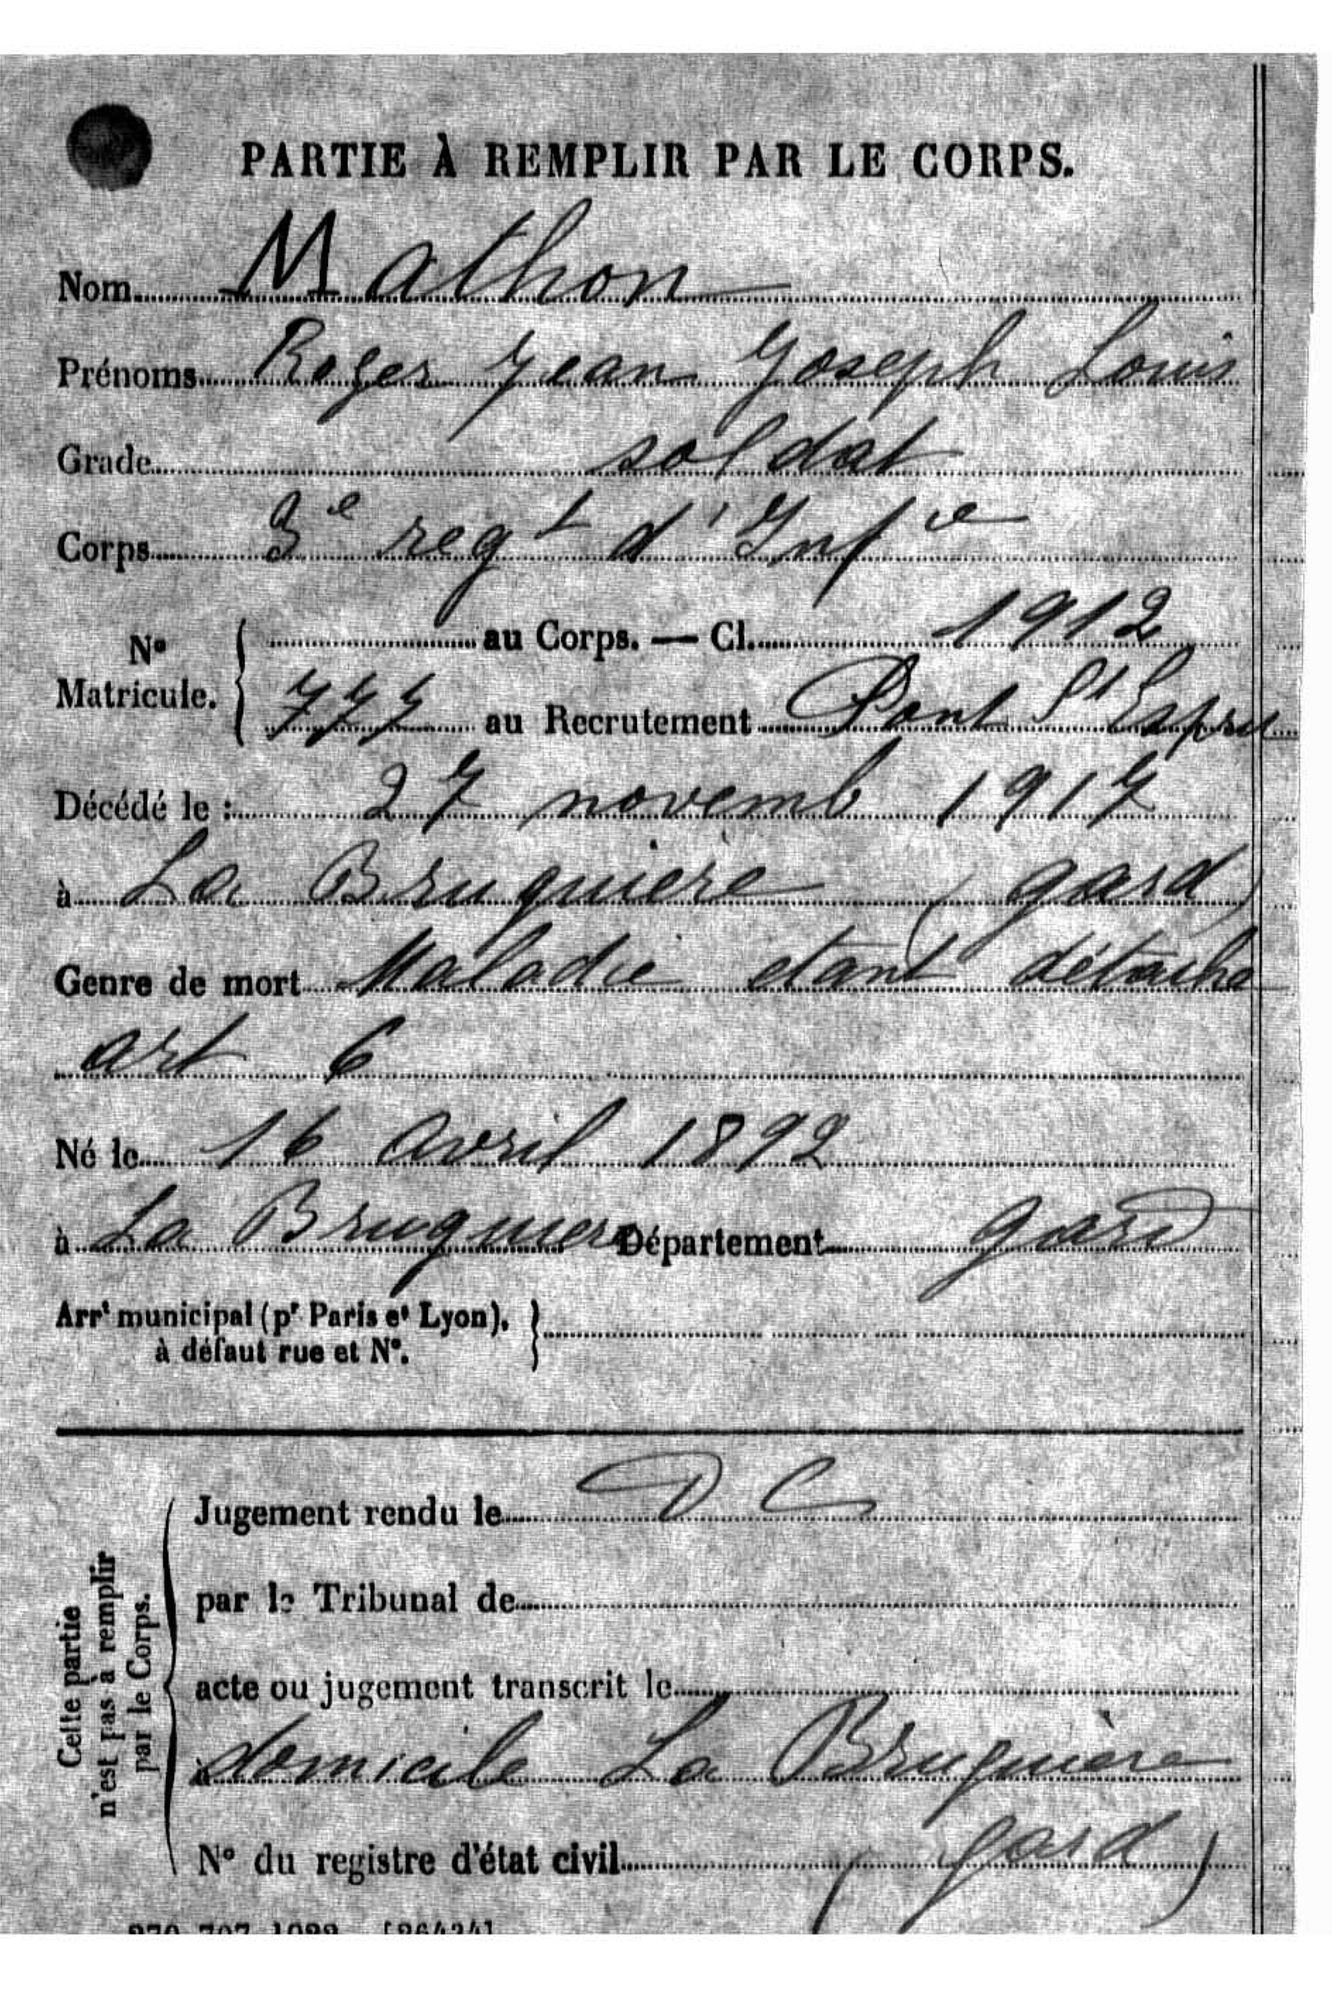 PARTIE À REMPLIR PAR LE CORPS.
Nom Mathon
Prénoms Roger Jean Joseph Louis
Grade soldat
Corps 3e regt d'Infie
No Matricule. { au Corps. — Cl. 1912
777 au Recrutement Pont St Esprit
Décédé le : 27 novemb 1917
à La Bruguière (gard)
Genre de mort Maladie etant détaché
art 6
Né le 16 avril 1892
à La Bruguiere Département gard
Arrt municipal (pr Paris et Lyon), }
à défaut rue et No.
Cette partie
n'est pas à remplir
par le Corps.
Jugement rendu le D C
par le Tribunal de
acte ou jugement transcrit le
domicile La Bruguière
No du registre d'état civil (gard)